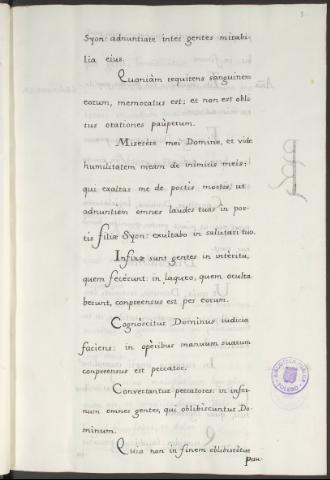 Syon: adnuntiate inter gentes mirabi-
lia eius.
Quoniàm requirens sanguinem
eorum, memoratus est; et non est obli-
tus orationes paúperum.
Miserére mei Domine, et vide
humilitatem meam de inimicis meis;
qui exaltas me de portis mortis, ut
adnuntiém omnes laudes tuas in por-
tis filiæ Syon: exultabo in salutari tuo.
Infixæ sunt gentes in intéritu,
quem fecérunt: in laqueo, quem oculta-
berunt, conpreensus est pes eorum.
Cognòscitur Dominus iudicia
faciens: in opéribus manuum suarum
conpreensus est peccator.
Convertantur peccatores: in infer-
num omnes gentes, qui obliviscuntur Do-
minum.
Quia non in finem obliviscétur
pau-